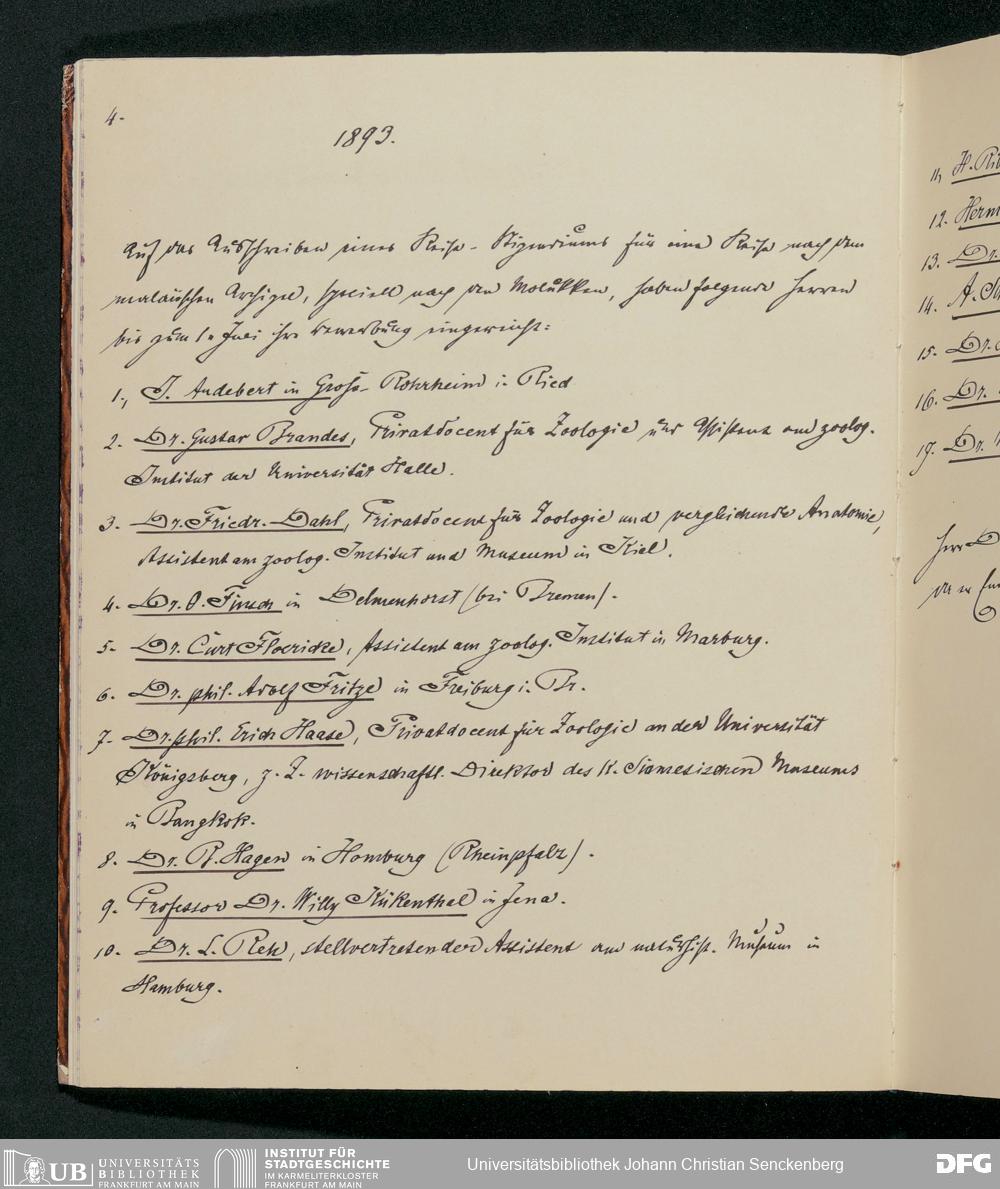 4.
1893.
Auf das Ausschreiben eines Reise-Stipendiums für eine Reise nach dem
malaiischen Archipel, speciell nach den Molukken, haben folgende Herren
bis zum 1. Juni ihre Bewerbung eingereicht:
1., J. Audebert in Gross-Rohrheim i. Ried
2. Dr. Gustav Brandes, Privatdocent für Zoologie und Assistent am zoolog.
Institut der Universität Halle.
3. Dr. Friedr. Dahl, Privatdocent für Zoologie und vergleichende Anatomie,
Assistent am zoolog. Institut und Museum in Kiel.
4. Dr. O. Finsch in Delmenhorst (bei Bremen).
5. Dr. Curt Floericke, Assistent am zoolog. Institut in Marburg.
6. Dr. phil. Adolf Fritze in Freiburg i. Br.
7. Dr. phil. Erich Haase, Privatdocent für Zoologie an der Universität
Königsberg, z. Z. wissenschaftl. Direktor des K. Siamesischen Museums
in Bangkok.
8. Dr. B. Hagen in Homburg (Rheinpfalz).
9. Professor Dr. Willy Kükenthal in Jena.
10. Dr. L. Reh, stellvertretender Assistent am naturhist. Museum in
Hamburg.
11, H.
12. Herm
13. Dr.
14. A.
15. Dr.
16. Dr.
17. Dr.
Herr D
UB UNIVERSITÄTS
BIBLIOTHEK
FRANKFURT AM MAIN
INSTITUT FÜR
STADTGESCHICHTE
IM KARMELITERKLOSTER
FRANKFURT AM MAIN
Universitätsbibliothek Johann Christian Senckenberg
DFG